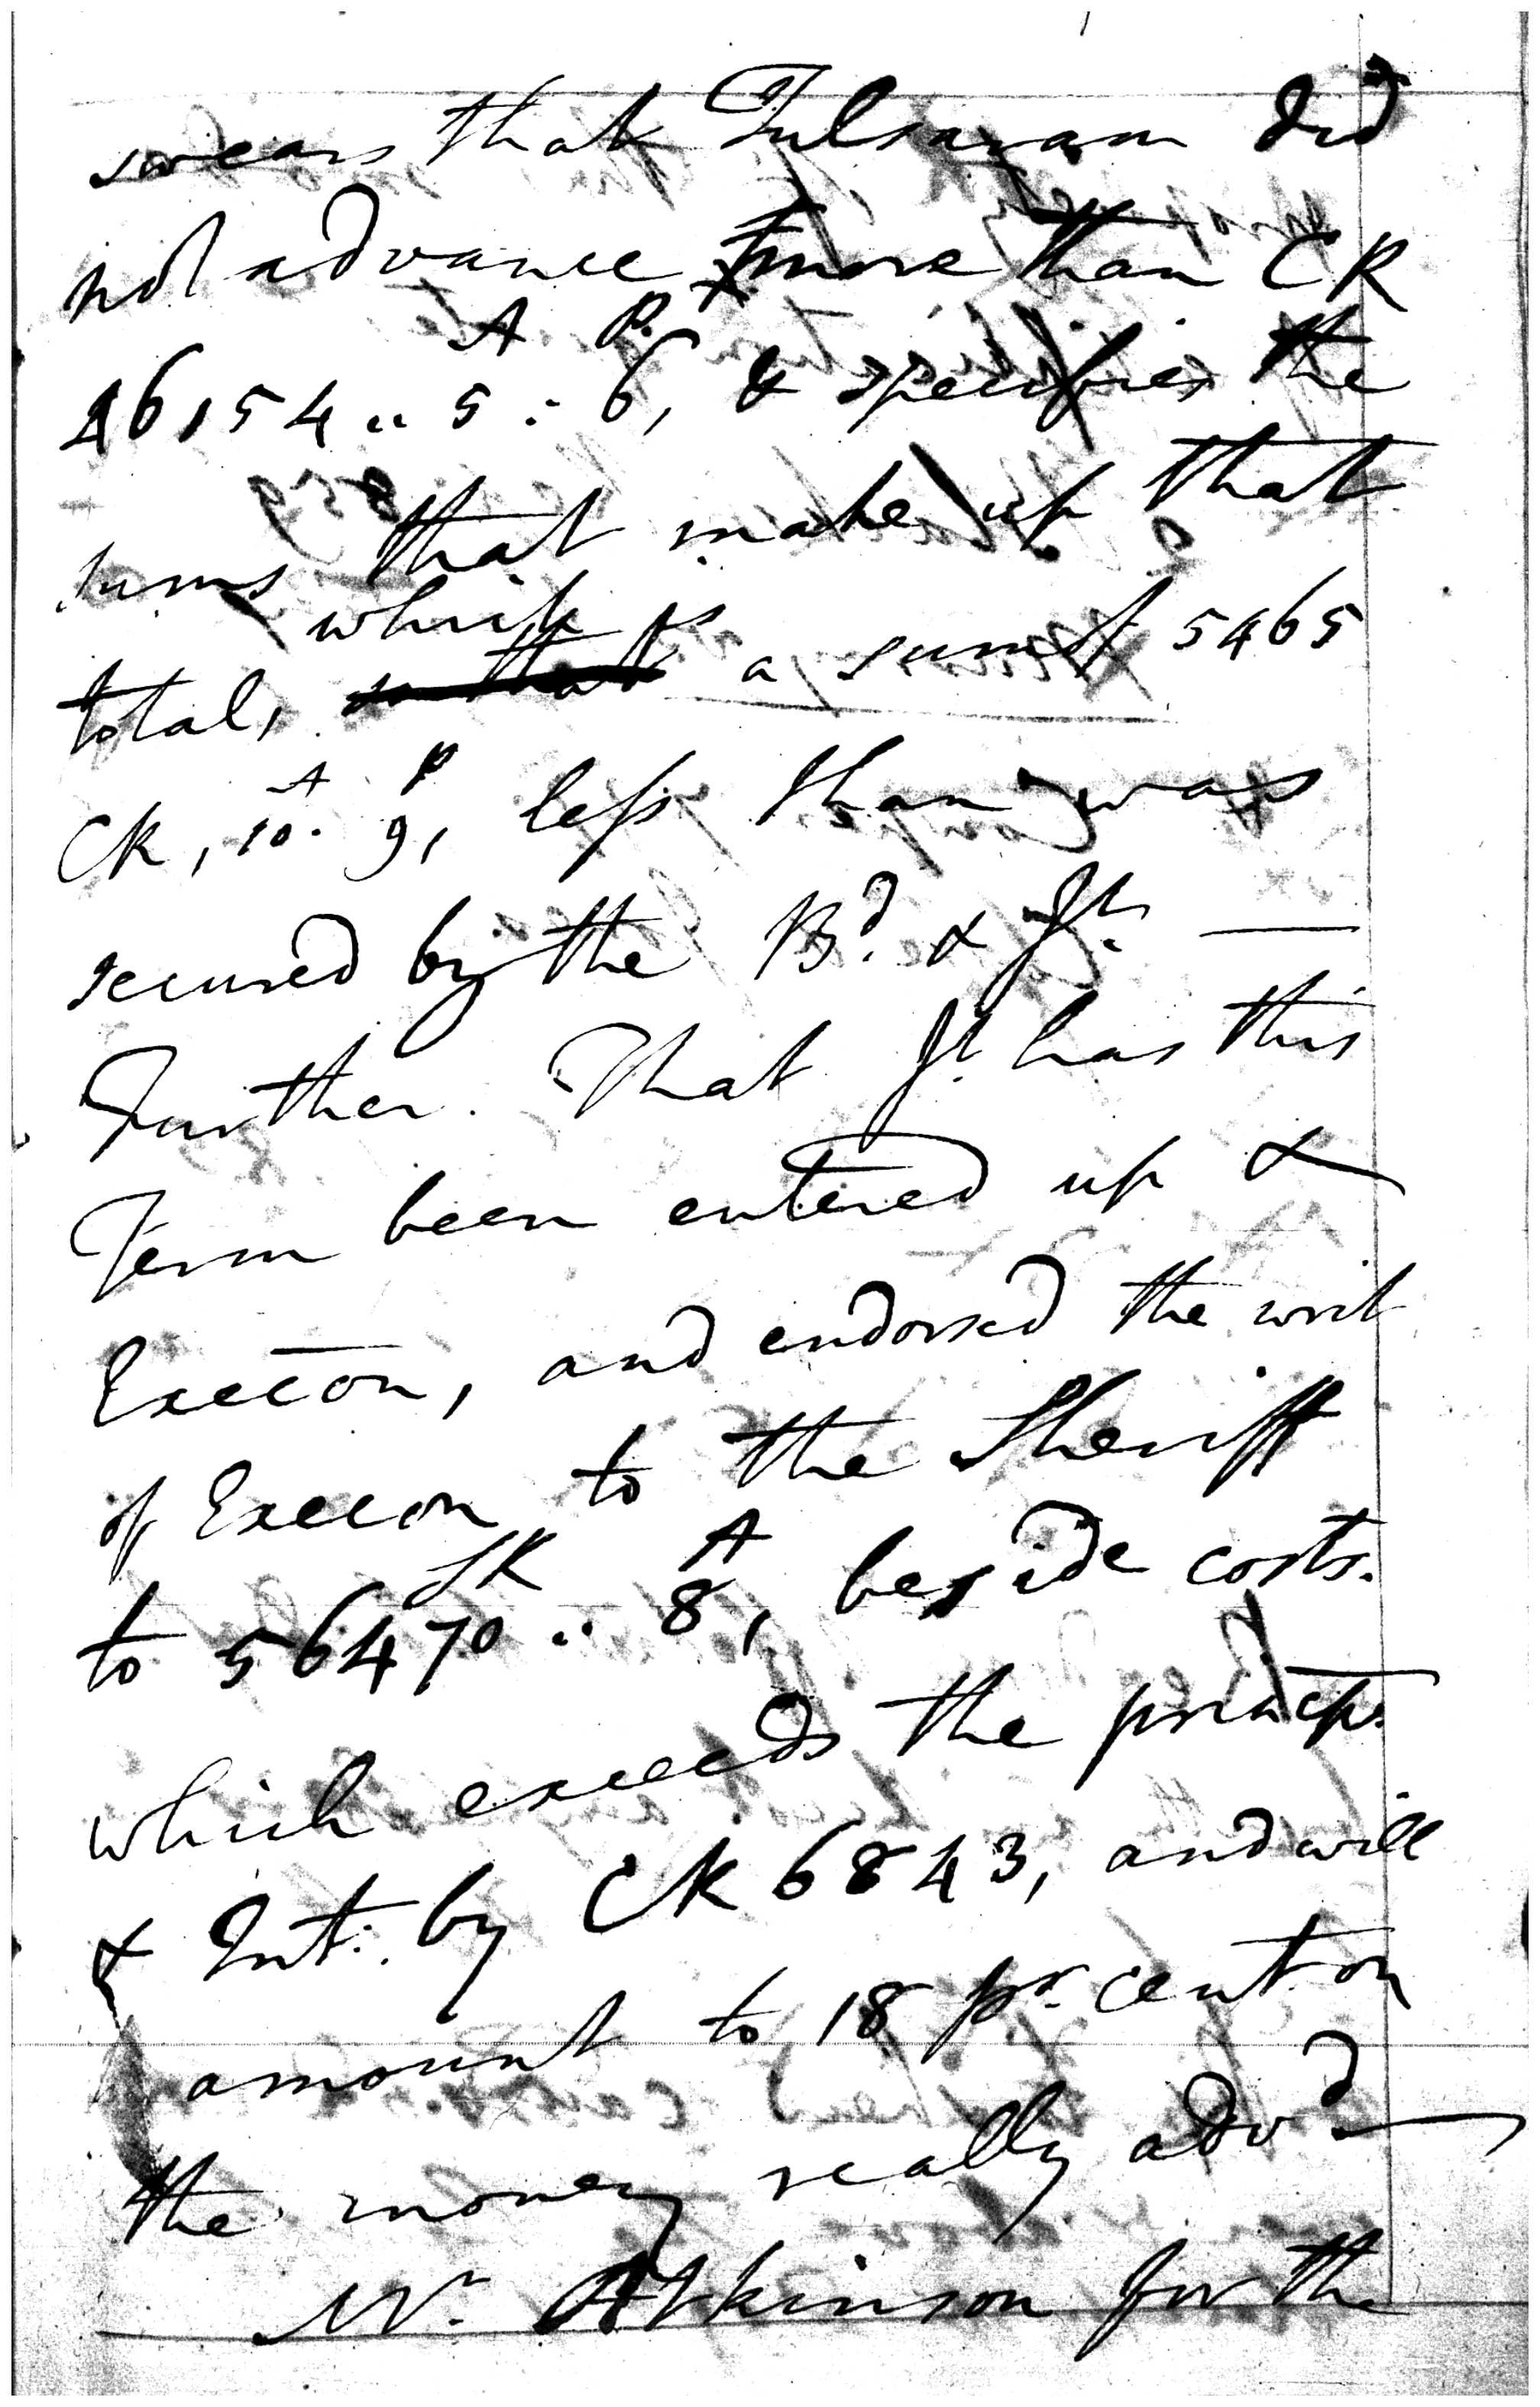 swears that Tulsaram did
not advance more than CR
A P.
46154.. 5 : 6, & specifies the
sums that make up that
which is
total, so that a sum of 5465
A P
CR, 10. 9, less than was
secured by the Bd. & Jt. —
Further. That Jt. has this
Term been entered up &
Execon, and endorsed the writ
of Execon to the Sheriff
SR A
to 56470 .. 8, beside costs.
which exceeds the princip.
& Int: by CR 6843, and will
amount to 18 pr. cent on
the money really advd —
Mr. Atkinson for the